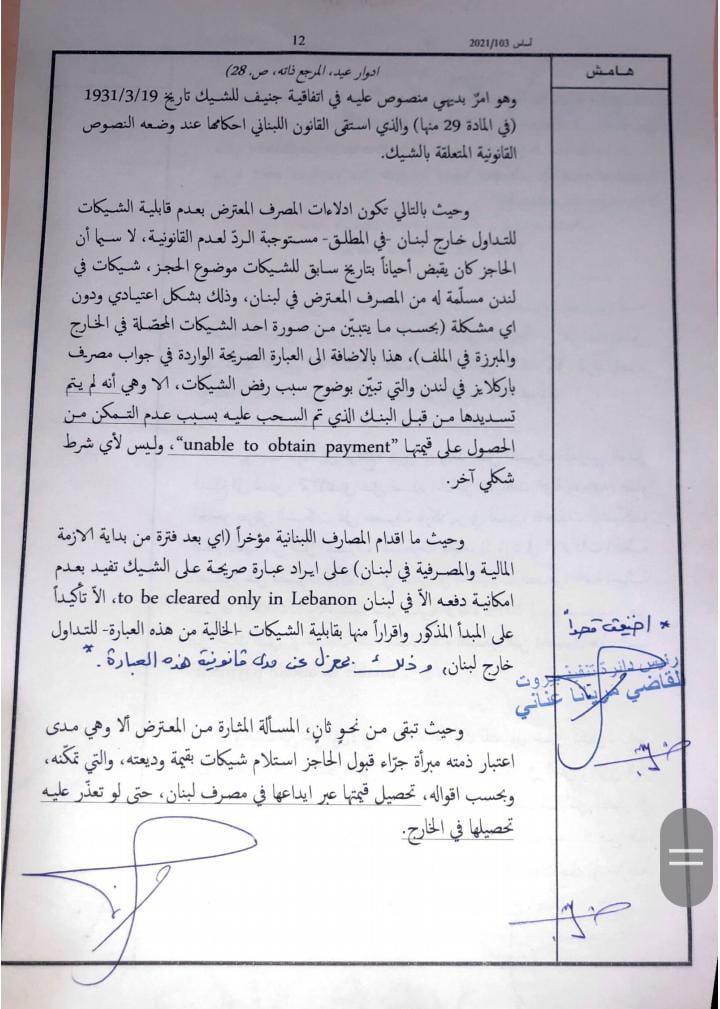 12
أساس 2021/103
هـامـش
ادوار عيد، المرجع ذاته، ص. 28)
وهو امرٌ بديهي منصوص عليه في اتفاقية جنيف للشيك تاريخ 1931/3/19
(في المادة 29 منها) والذي استقى القانون اللبناني احكامها عند وضعه النصوص
القانونية المتعلقة بالشيك.
وحيث بالتالي تكون ادلاءات المصرف المعترض بعدم قابلية الشيكات
للتداول خارج لبنان -في المطلق- مستوجبة الردّ لعدم القانونية، لا سيما أن
الحاجز كان يقبض أحياناً بتاريخ سابق للشيكات موضوع الحجز، شيكات في
لندن مسلّمة له من المصرف المعترض في لبنان، وذلك بشكل اعتيادي ودون
اي مشكلة (بحسب ما يتبيّن من صورة احد الشيكات المحصّلة في الخارج
والمبرزة في الملف)، هذا بالاضافة الى العبارة الصريحة الواردة في جواب مصرف
باركلايز في لندن والتي تبيّن بوضوح سبب رفض الشيكات، الا وهي أنه لم يتم
تسديدها من قبل البنك الذي تم السحب عليه بسبب عدم التمكن من
الحصول على قيمتها "unable to obtain payment"، وليس لأي شرط
شكلي آخر.
وحيث ما اقدام المصارف اللبنانية مؤخراً (اي بعد فترة من بداية الازمة
المالية والمصرفية في لبنان) على ايراد عبارة صريحة على الشيك تفيد بعدم
امكانية دفعه الاّ في لبنان to be cleared only in Lebanon، الاّ تأكيداً
على المبدأ المذكور واقراراً منها بقابلية الشيكات -الخالية من هذه العبارة- للتداول
خارج لبنان, وذلك بمعزل عن مدى قانونية هذه العبارة. *
* اضيف قصداً
رئيس دائرة تنفيذ بيروت
القاضي مريانا عناني
وحيث تبقى من نحوٍ ثانٍ، المسألة المثارة من المعترض ألا وهي مدى
اعتبار ذمته مبرأة جرّاء قبول الحاجز استلام شيكات بقيمة وديعته، والتي تمكّنه،
وبحسب اقواله، تحصيل قيمتها عبر ايداعها في مصرف لبنان، حتى لو تعذّر عليه
تحصيلها في الخارج.